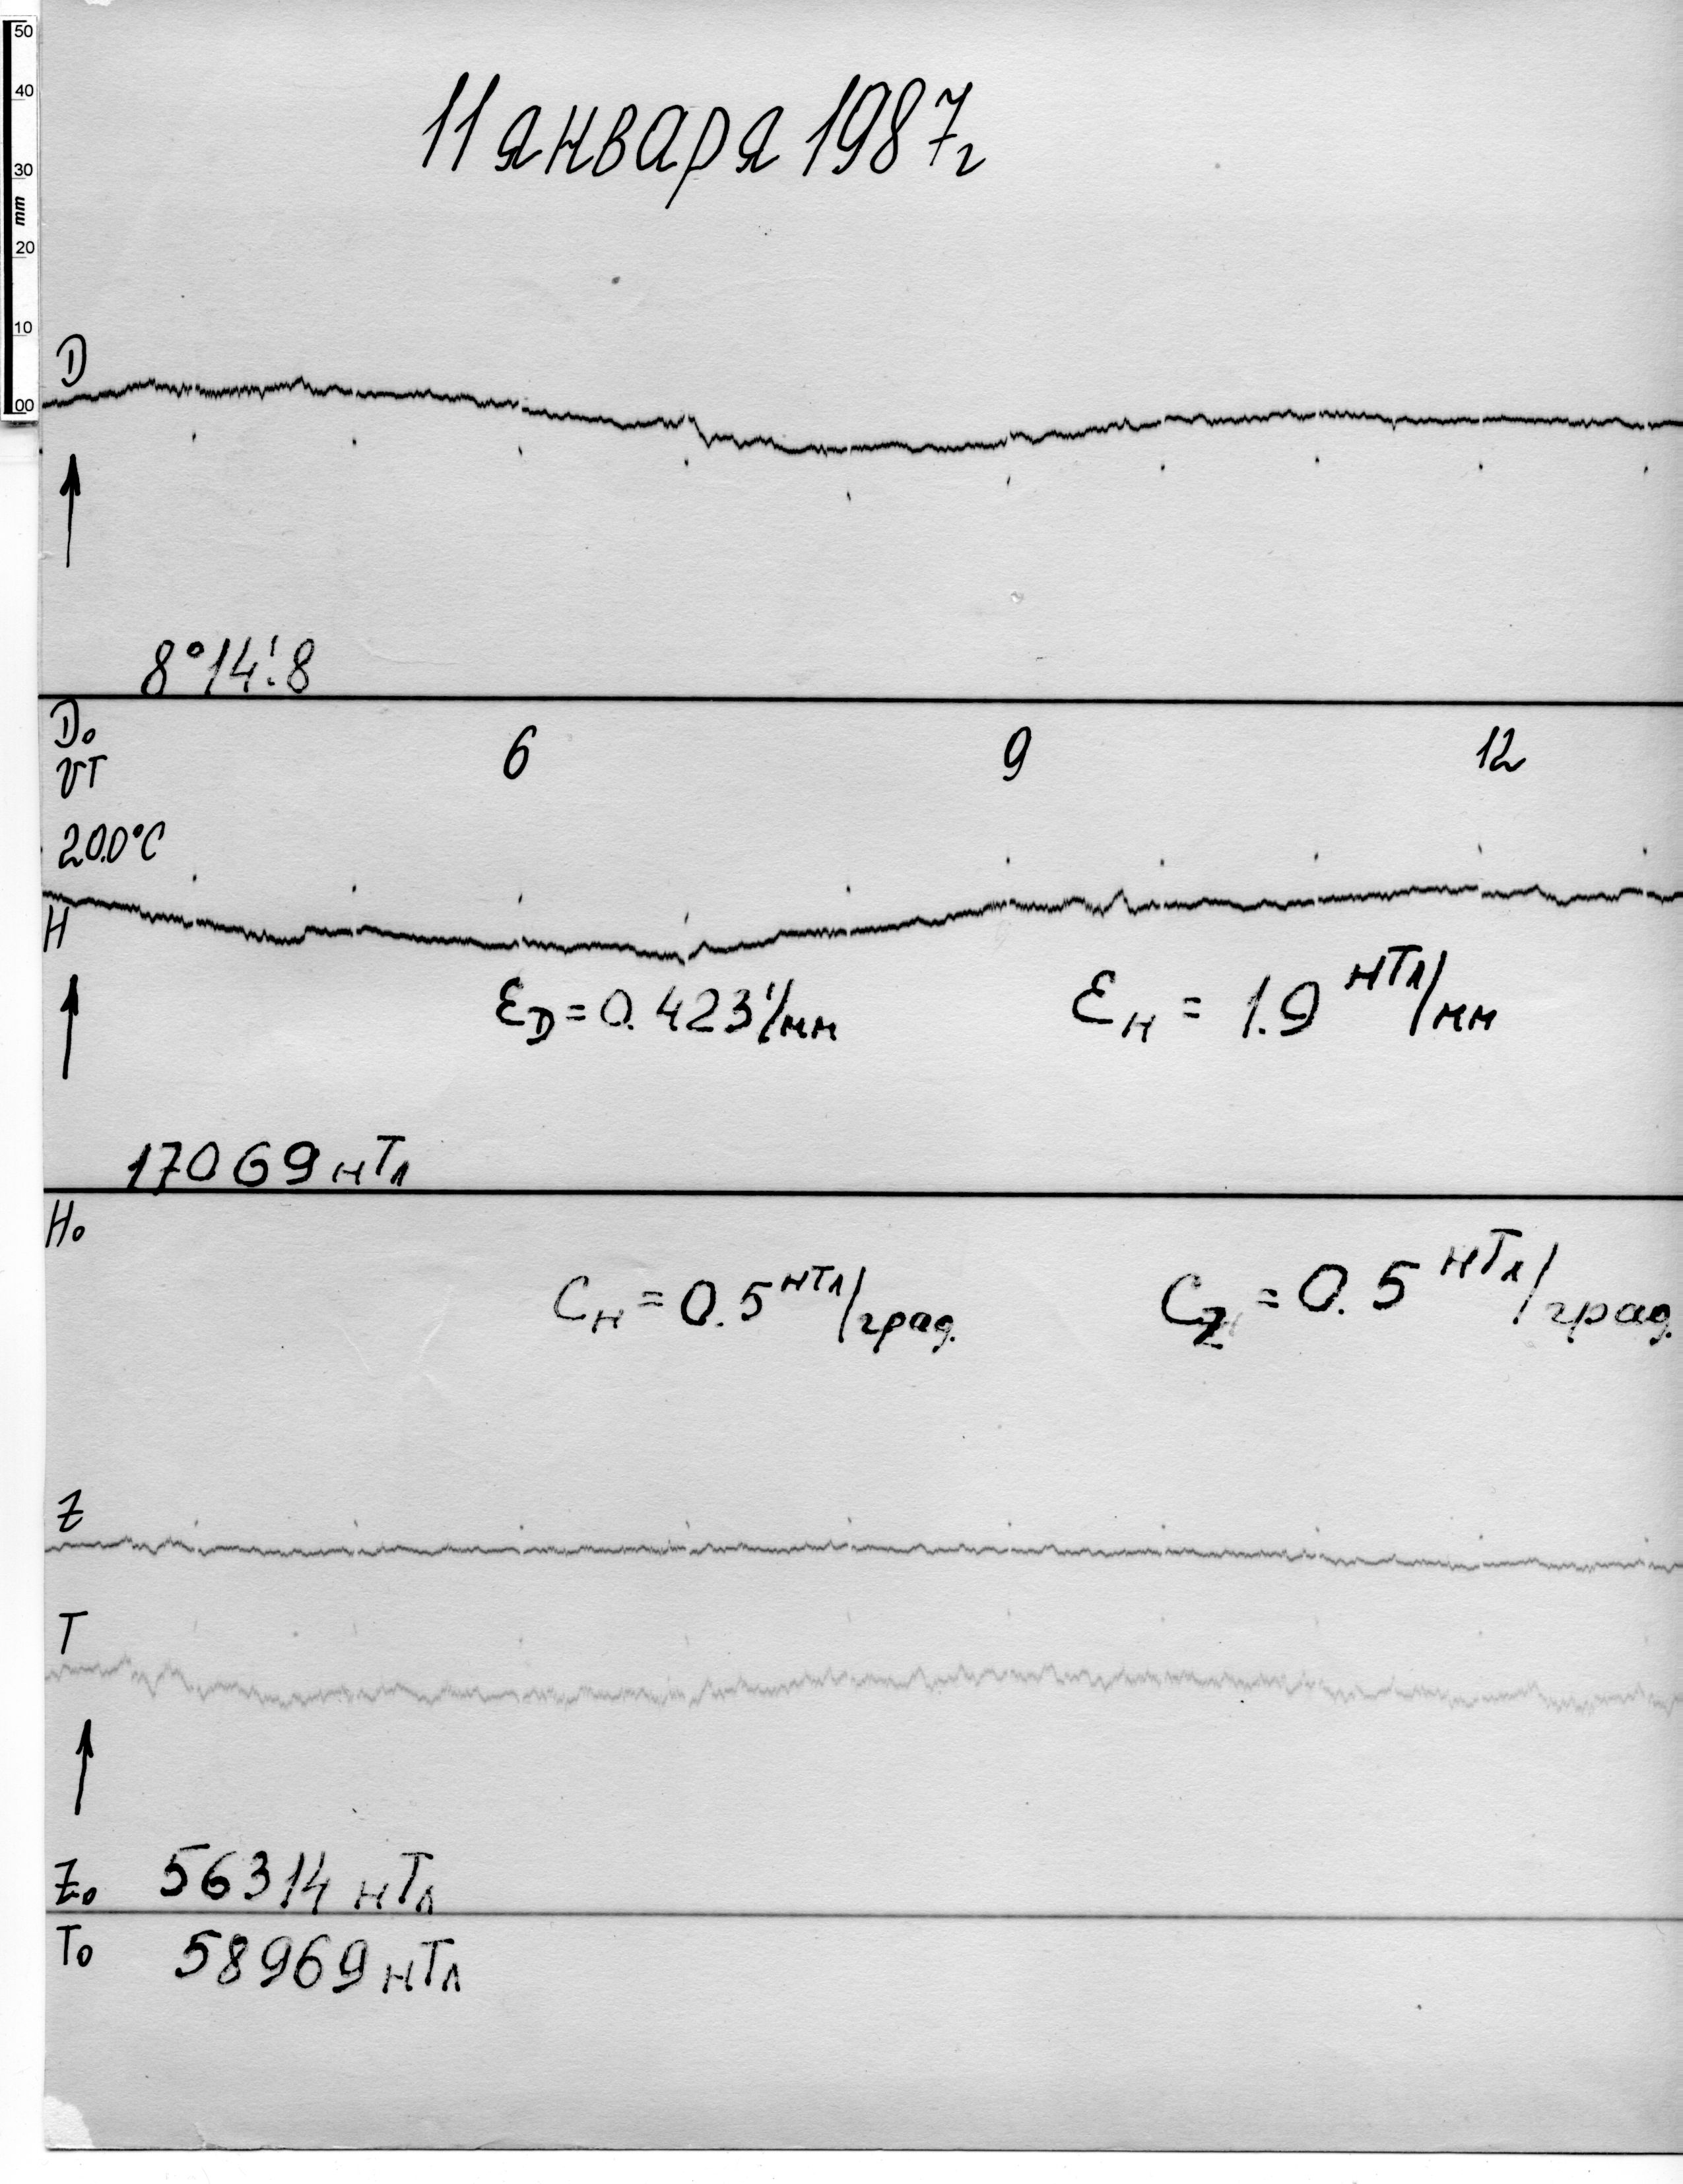 50
40
30
mm
20
10
00
11 января 1987г
D
8°14!8
D₀
UT
6 9 12
20.0°C
H
ε_D = 0.423'/мм ε_H = 1.9 нТл/мм
17069 нТл
H₀
C_H = 0.5 нТл/град. C_Z = 0.5 нТл/град.
Z
T
Z₀ 56314 нТл
T₀ 58969 нТл